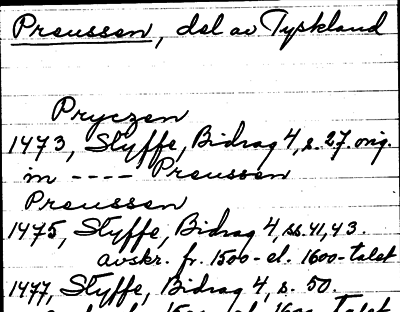 Preussen, del av Tyskland
Pryczen
1473, Styffe, Bidrag 4, s. 27. orig.
in ---- Preussen
Preussen
1475, Styffe, Bidrag 4, ss. 41, 43.
avskr. fr. 1500- el. 1600-talet
1477, Styffe, Bidrag 4, s. 50.
avskr. fr. 1500- el. 1600-talet